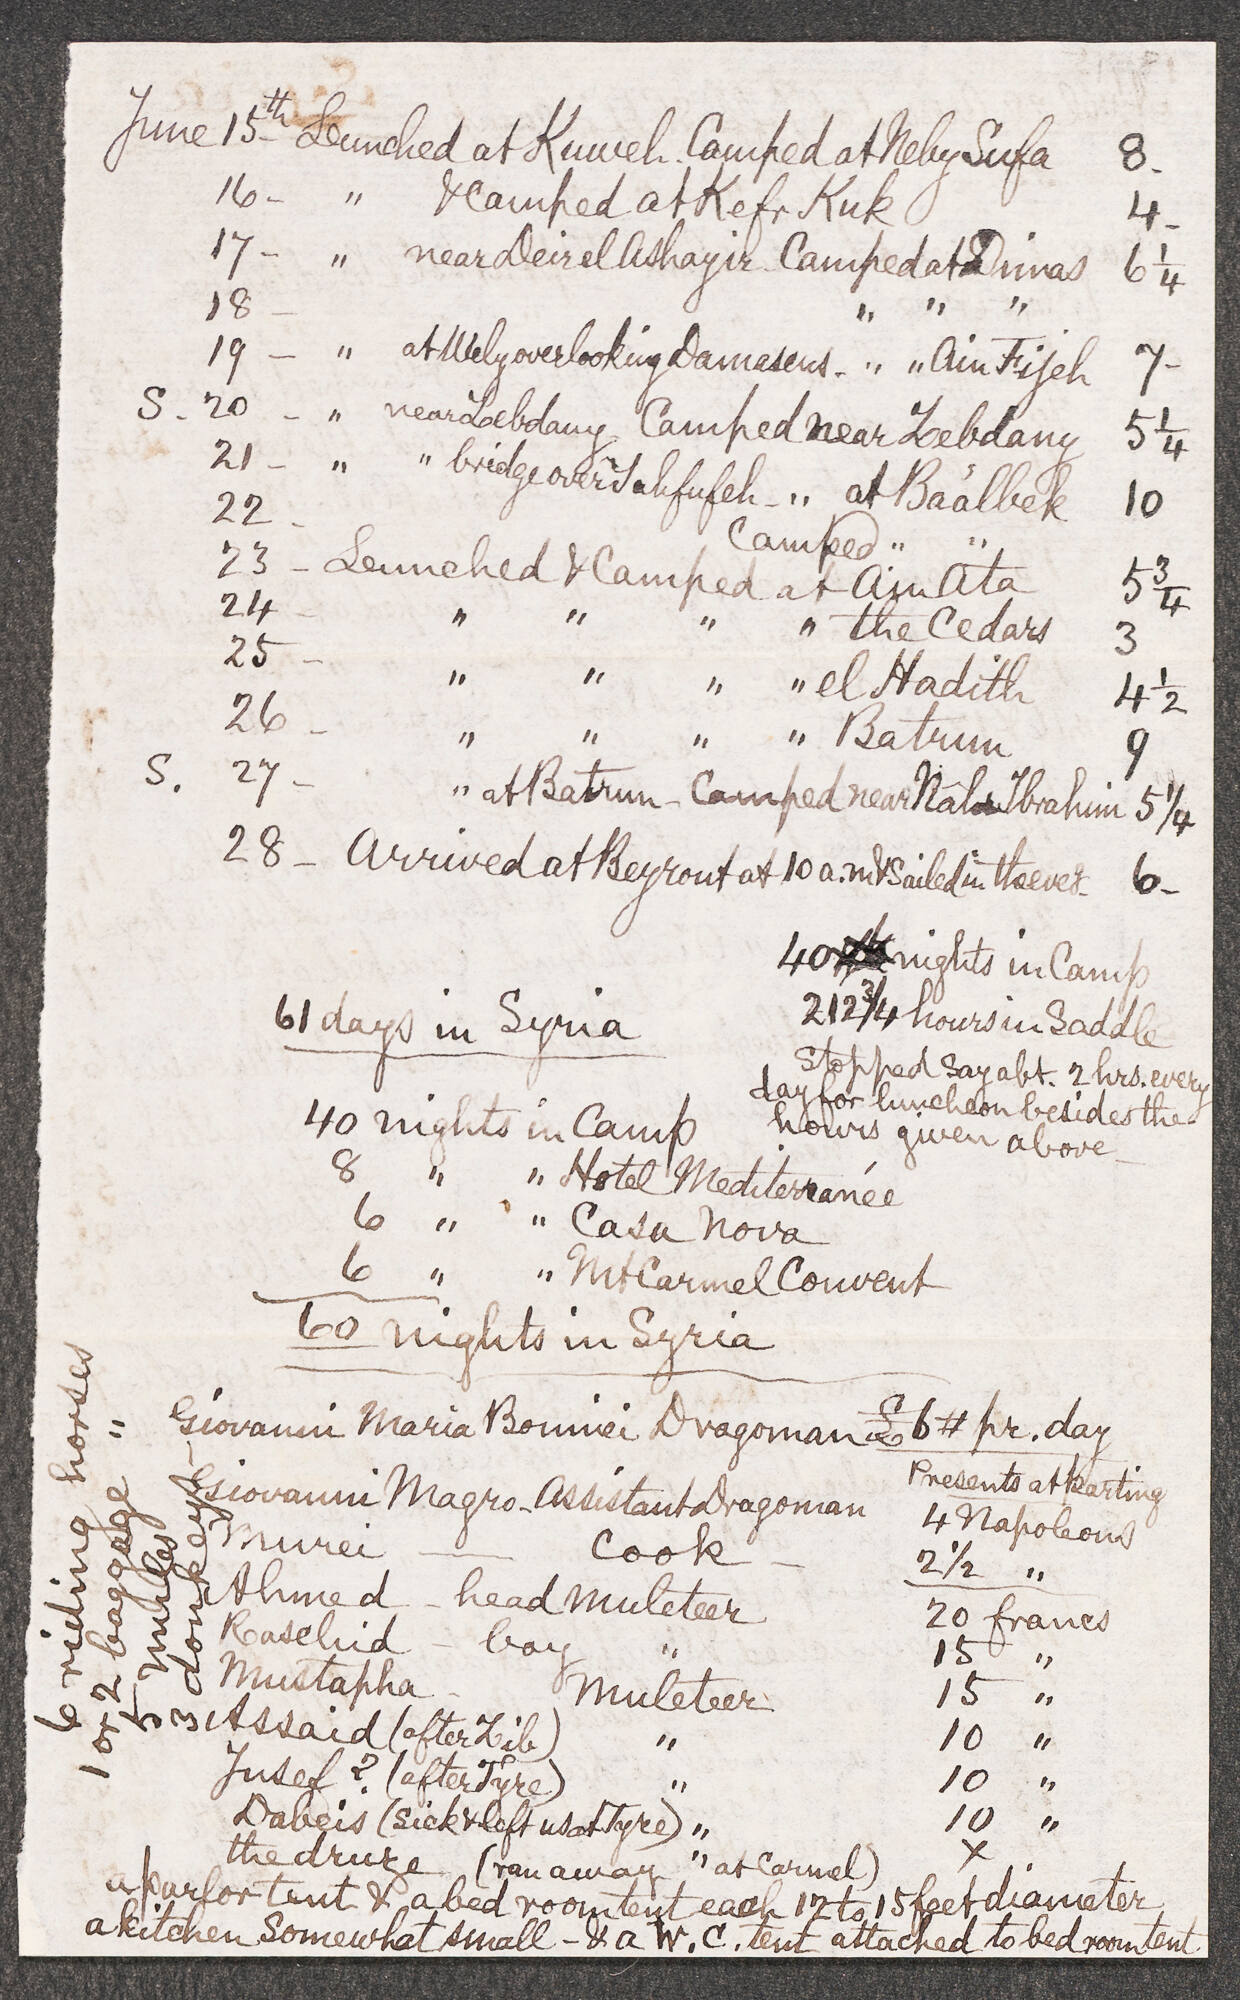 June 15th Lunched at Kuweh. Camped at Neby Sufa 8.
16 - " & Camped at Kefr Kuk 4 -
17 - " near Deir el Ashayir Camped at Dimas 6 1/4
18 - " " "
19 - " at Wely overlooking Damascus - " " Ain Fijeh 7 -
S. 20 - " near Zebdany Camped near Zebdany 5 1/4
21 - " " bridge over Tahfufeh - " at Baálbek 10
22 - Camped " "
23 - Lunched & Camped at Ain Ata 5 3/4
24 - " " " " the Cedars 3
25 - " " " " el Hadith 4 1/2
26 - " " " " Batrun 9
S. 27 - " at Batrun - Camped near Nahr Ibrahim 5 1/4
28 - Arrived at Beyrout at 10 a.m & Sailed in the eveg. 6 -
40 nights in Camp
212 3/4 hours in Saddle
Stopped say abt. 2 hrs. every
day for luncheon besides the
hours given above -
61 days in Syria
40 nights in Camp
8 " " Hotel Mediterranée
6 " " Casa Nova
6 " " Mt Carmel Convent
60 nights in Syria
Giovanni Maria Bonnici Dragoman £6 # pr. day
Presents at parting
Giovanni Magro - Assistant Dragoman 4 Napoleons
Murei — Cook - 2 1/2 "
Ahmed - head Muleteer 20 francs
Raschid - boy " 15 "
Mustapha - Muleteer 15 "
Assaid (after Zib) " 10 "
Jusef? (after Tyre) " 10 "
Dabeis (sick & left us at Tyre) " 10 "
the druze (ran away " at Carmel) X
a parlor tent & a bed room tent each 12 to 15 feet diameter
a kitchen somewhat small - & a W.C. tent attached to bed room tent
6 riding horses
1 or 2 baggage "
5 mules
3 donkeys -